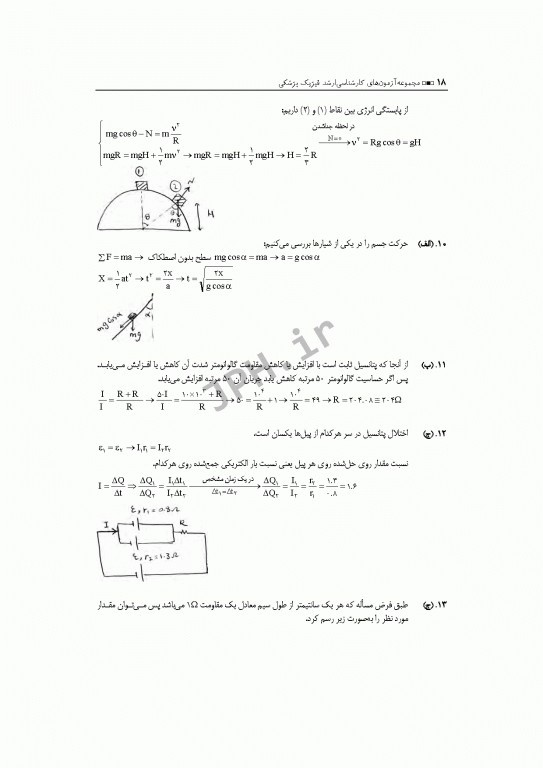 ۱۸ مجموعه‌آزمون‌های کارشناسی‌ارشد فیزیک پزشکی
از پایستگی انرژی بین نقاط (۱) و (۲) داریم:
mg cos θ − N = m v²/R در لحظه جداشدن N=۰ → v² = Rg cos θ = gH
mgR = mgH + ۱/۲ mv² → mgR = mgH + ۱/۲ mgH → H = ۲/۳ R
1 2 N
θ mg H
۱۰. (الف) حرکت جسم را در یکی از شیارها بررسی می‌کنیم:
∑F = ma → سطح بدون اصطکاک mg cos α = ma → a = g cos α
X = ۱/۲ at² → t² = ۲x/a → t = √(۲x/(g cos α))
mg cos α α
mg
۱۱. (ب) از آنجا که پتانسیل ثابت است با افزایش یا کاهش مقاومت گالوانومتر شدت آن کاهش یا افـزایش مـی‌یابـد.
پس اگر حساسیت گالوانومتر ۵۰ مرتبه کاهش یابد جریان آن ۵۰ مرتبه افزایش می‌یابد.
I/I = (R + R)/R → ۵۰I/I = (۱۰×۱۰³ + R)/R → ۵۰ = ۱۰⁴/R + ۱ → ۱۰⁴/R = ۴۹ → R = ۲۰۴.۰۸ ≅ ۲۰۴Ω
۱۲. (ج) اختلال پتانسیل در سر هرکدام از پیل‌ها یکسان است.
ε₁ = ε₂ → I₁r₁ = I₂r₂
نسبت مقدار روی حل‌شده روی هر پیل یعنی نسبت بار الکتریکی جمع‌شده روی هرکدام.
I = ΔQ/Δt ⇒ ΔQ₁/ΔQ₂ = I₁Δt₁/I₂Δt₂ در یک زمان مشخص Δt₁=Δt₂ → ΔQ₁/ΔQ₂ = I₁/I₂ = r₂/r₁ = ۱.۳/۰.۸ = ۱.۶
ε, r₁ = 0.8 Ω
I R
ε, r₂ = 1.3 Ω
۱۳. (ج) طبق فرض مسأله که هر یک سانتیمتر از طول سیم معادل یک مقاومت ۱Ω می‌باشد پس مـی‌تـوان مقـدار
مورد نظر را به‌صورت زیر رسم کرد.
JPH.ir